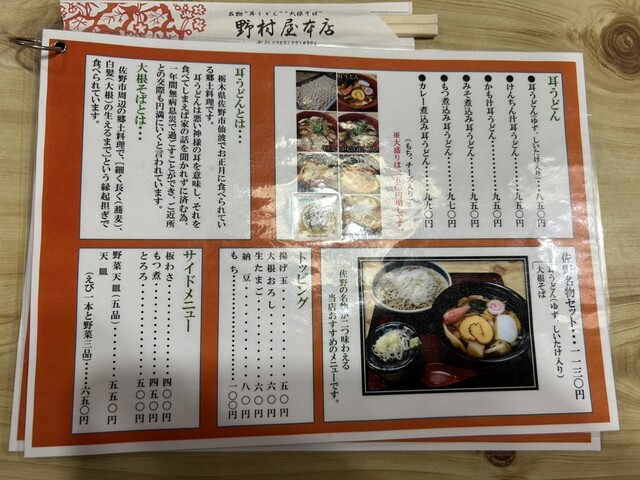 名物 "耳うどん" "大根そば"
野村屋本店
耳うどん
●耳うどん(ゆず、しいたけ入り)・・・八五〇円
●けんちん汁耳うどん・・・・・・九五〇円
●かも汁耳うどん・・・・・・・九五〇円
●みそ煮込み耳うどん・・・・・・九五〇円
●もつ煮込み耳うどん・・・・・・九七〇円
●カレー煮込み耳うどん・・・・・九九〇円
(もち、チーズ入り)
耳うどん
耳うどんとは・・・
栃木県佐野市仙波でお正月に食べられてい
る郷土料理です。
耳うどんは悪い神様の耳を意味し、それを
食べてしまえば家の話を聞かれずに済む為、
一年間無病息災で過ごすことができ、ご近所
との交際も円満にいくと言われています。
大根そばとは・・・
佐野市周辺の郷土料理で、「細く長く(蕎麦)、
白髪(大根)の生えるまで」という縁起担ぎで
食べられています。
佐野名物セット・・・一一三〇円
耳うどん(ゆず、しいたけ入り)
大根そば
佐野の名物が二つ味わえる
当店おすすめのメニューです。
トッピング
揚げ玉・・・・・・・五〇円
大根おろし・・・・・六〇円
生たまご・・・・・・六〇円
納豆・・・・・・・・八〇円
もち・・・・・・・一〇〇円
サイドメニュー
板わさ・・・・・・・四〇〇円
もつ煮・・・・・・・四五〇円
とろろ・・・・・・・一五〇円
野菜天皿(五品)・・・・五五〇円
天皿
(えび一本と野菜三品)・・・六五〇円